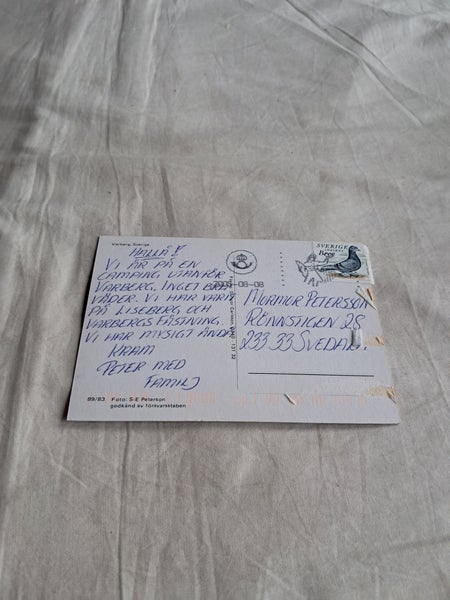 Varberg, Sverige
HALLÅ!
VI ÄR PÅ EN
CAMPING UTANFÖR
VARBERG. INGET BRA
VÄDER. VI HAR VARIT
PÅ LISEBERG OCH
VARBERGS FÄSTNING.
VI HAR MYSIGT ÄNDÅ
KRAM
PETER MED
FAMILJ
89/83 Foto: S-E Peterson
godkänd av försvarsstaben
SVERIGE
Brev
-08-08
MORMOR PETERSSON
RÖNNSTIGEN 28
233 33 SVEDALA